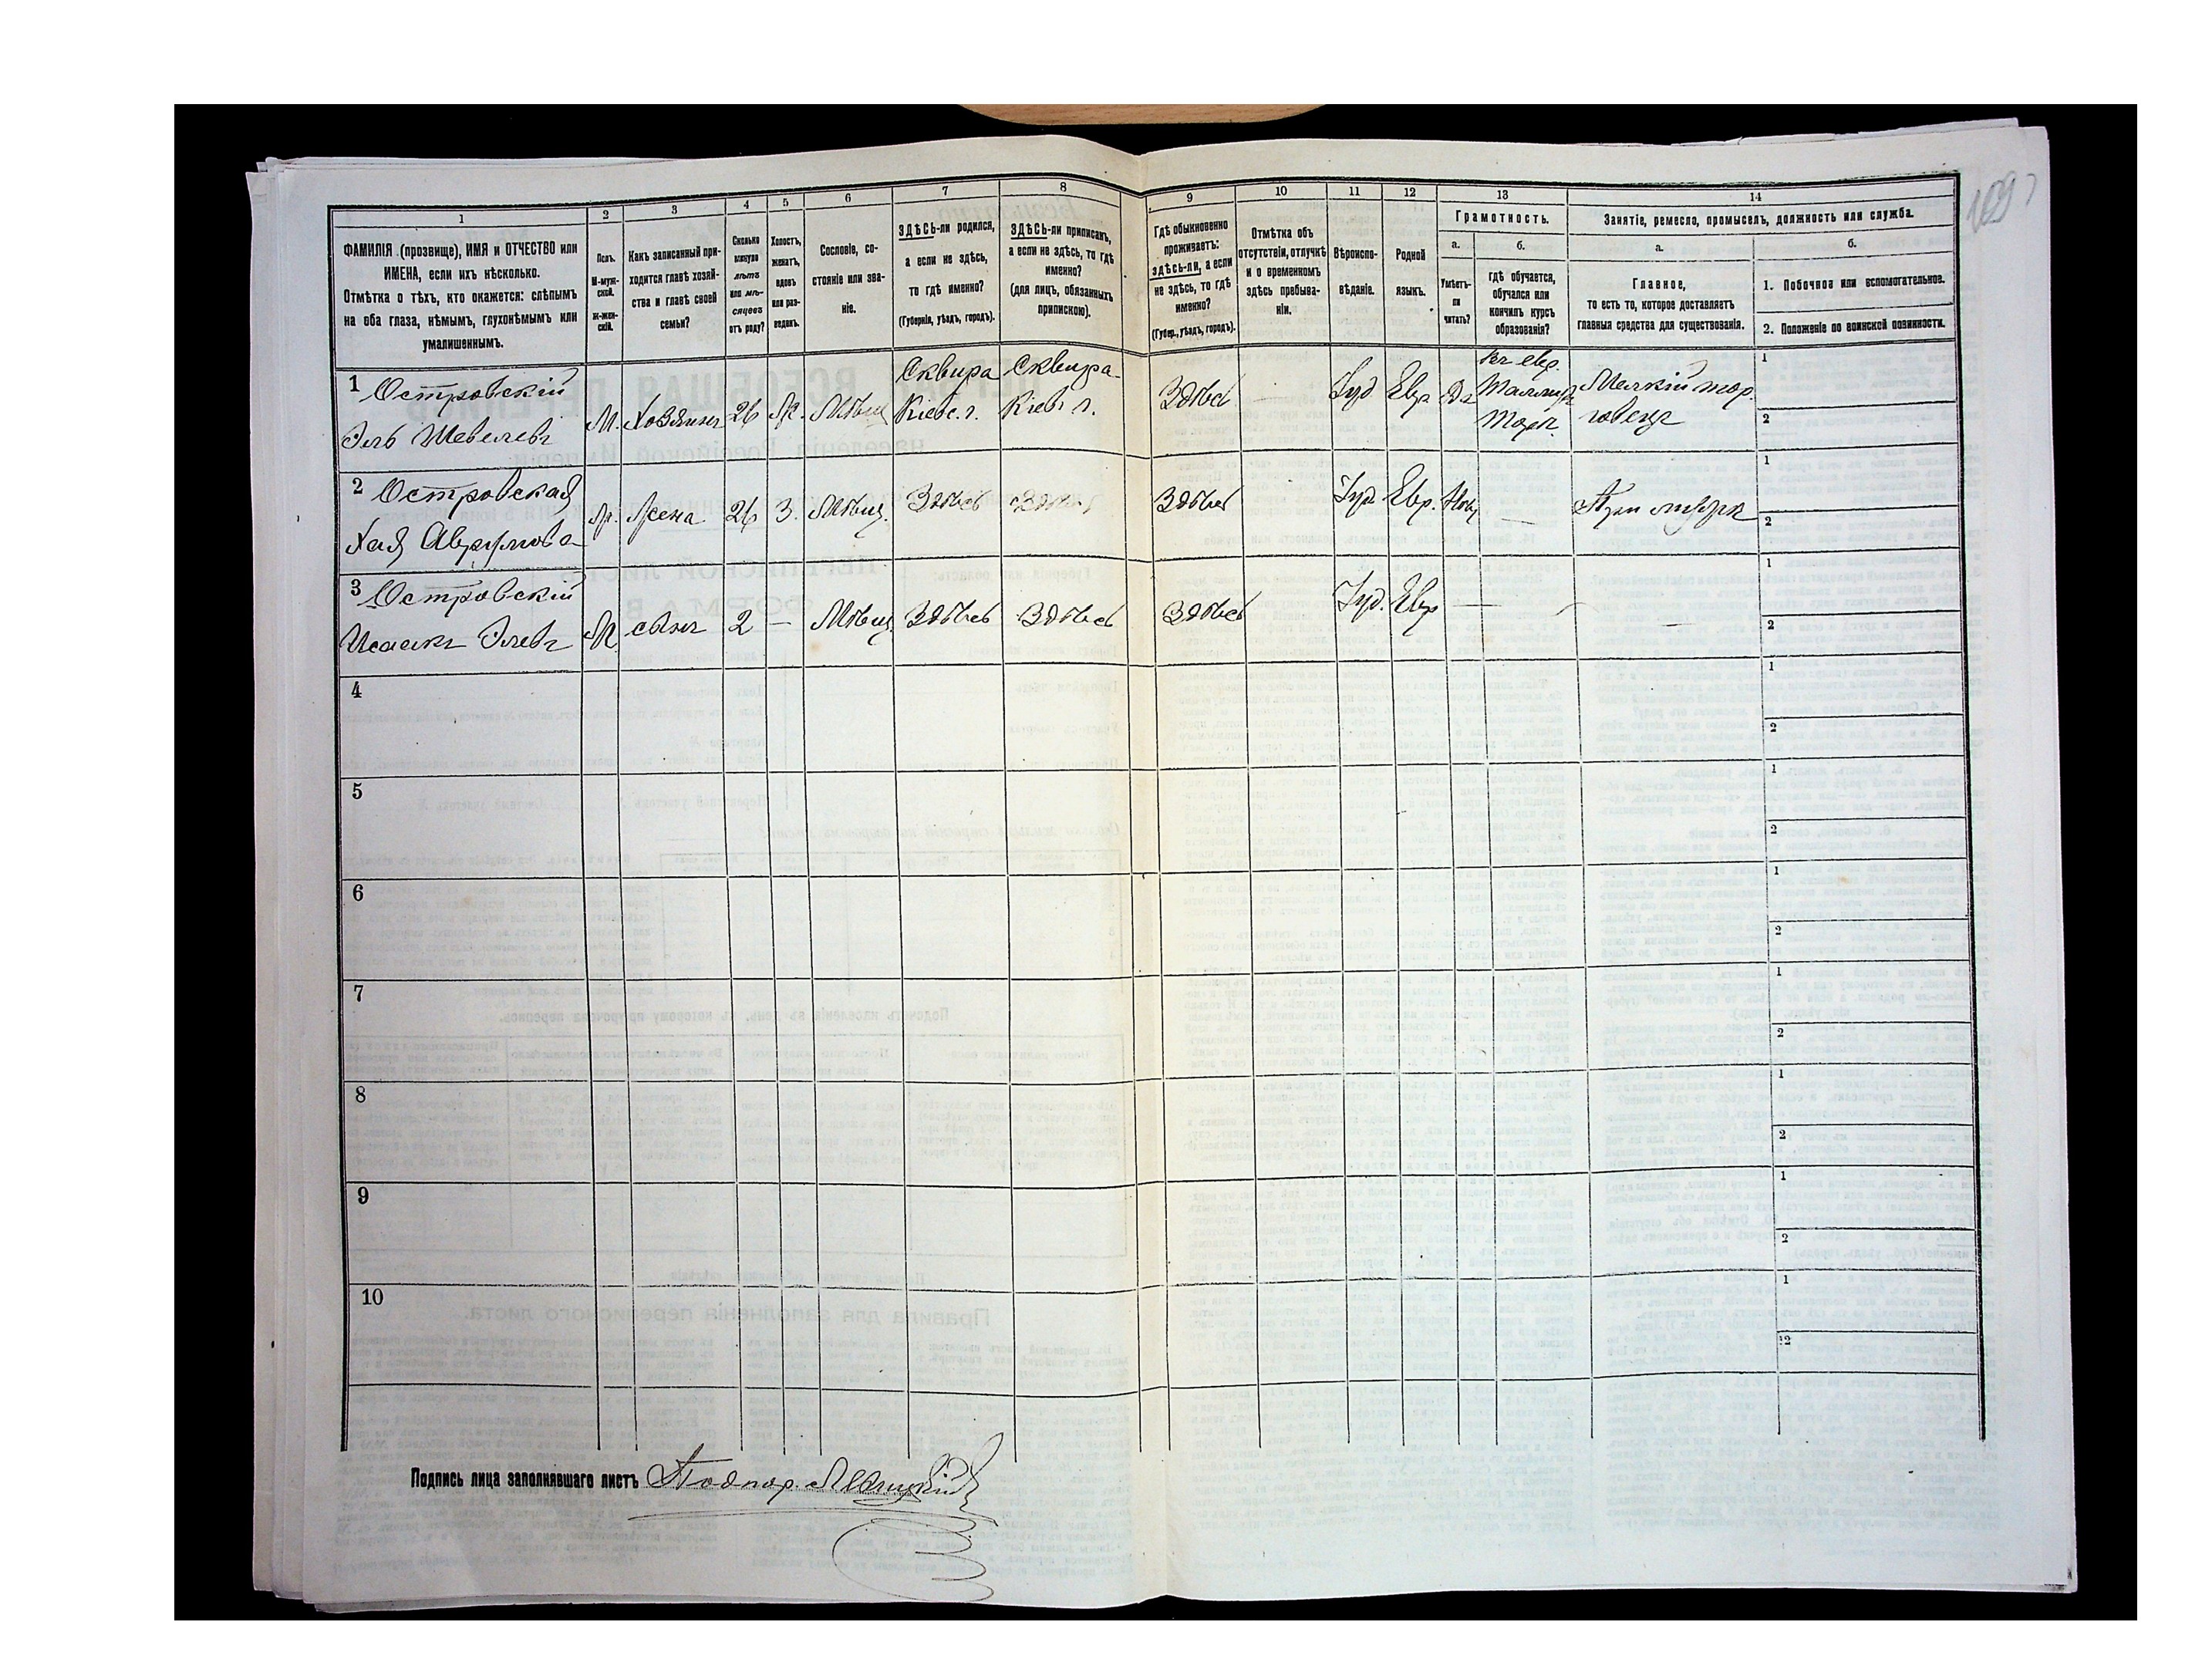 109
1 2 3 4 5 6 7 8 9 10 11 12 13 14
ФАМИЛІЯ (прозвище), ИМЯ и ОТЧЕСТВО или
ИМЕНА, если ихъ нѣсколько.
Отмѣтка о тѣхъ, кто окажется: слѣпымъ
на оба глаза, нѣмымъ, глухонѣмымъ или
умалишеннымъ.
Полъ.
М-муж-
ской.
Ж-жен-
скій.
Какъ записанный при-
ходится главѣ хозяй-
ства и главѣ своей
семьи?
Сколько
минуло
лѣтъ
или мѣ-
сяцевъ
отъ роду?
Холостъ,
женатъ,
вдовъ
или раз-
веденъ.
Сословіе, со-
стояніе или зва-
ніе.
ЗДѢСЬ-ли родился,
а если не здѣсь,
то гдѣ именно?
(Губернія, уѣздъ, городъ).
ЗДѢСЬ-ли приписанъ,
а если не здѣсь, то гдѣ
именно?
(для лицъ, обязанныхъ
припискою).
Гдѣ обыкновенно
проживаетъ:
здѣсь-ли, а если
не здѣсь, то гдѣ
именно?
(Губер., уѣздъ, городъ).
Отмѣтка объ
отсутствіи, отлучкѣ
и о временномъ
здѣсь пребыва-
ніи.
Вѣроиспо-
вѣданіе.
Родной
языкъ.
Грамотность.
а.
Умѣетъ-
ли
читать?
б.
гдѣ обучается,
обучался или
кончилъ курсъ
образованія?
Занятіе, ремесло, промыселъ, должность или служба.
а.
Главное,
то есть то, которое доставляетъ
главныя средства для существованія.
б.
1. Побочное или вспомогательное.
2. Положеніе по воинской повинности.
1 Островскій
Эль Шевелевъ
М. Хозяинъ 26 Ж. Мѣщ
Сквира
Кіевс. г.
Сквира
Кіев. г.
Здѣсь Іуд Евр Да
въ евр.
Мелкій тор
говецъ
1
2
2 Островская
Хая
Ж. Жена 26 З. Мѣщ. Здѣсь Здѣсь Здѣсь Іуд. Евр.
—
При мужѣ
1
2
3 Островскій
Исаакъ Элевъ
М. сынъ 2 — Мѣщ. Здѣсь Здѣсь Здѣсь Іуд. Евр — — —
1
2
4
1
2
5
1
2
6
1
2
7
1
2
8
1
2
9
1
2
10
1
12
Подпись лица заполнявшаго листъ